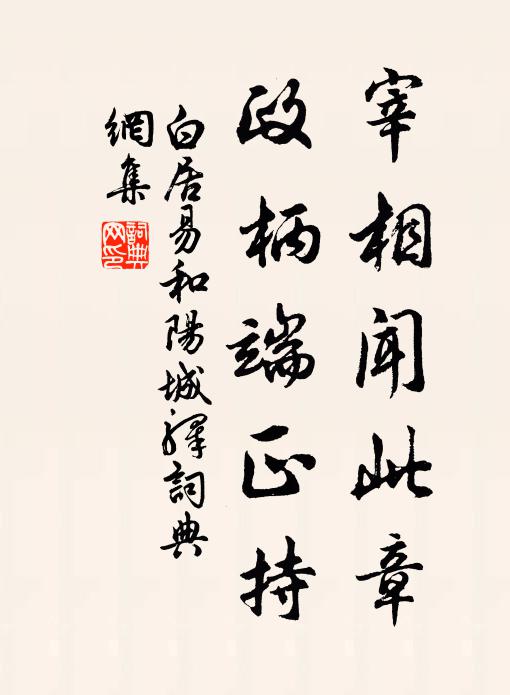 宰相聞此章
政柄端正持
白居易和陽城驛詞典
網集
詞典
网印